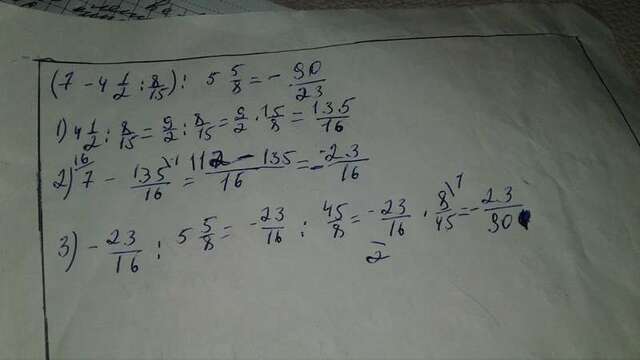 (7 - 4 1/2 : 8/15) : 5 5/8 = - 90/23
1) 4 1/2 : 8/15 = 9/2 : 8/15 = 9/2 · 15/8 = 135/16
2) 7\16 - 135/16\1 = 112 - 135/16 = - 23/16
3) - 23/16 : 5 5/8 = - 23/16 : 45/8 = - 23/16 2 · 8\1/45 = - 23/90